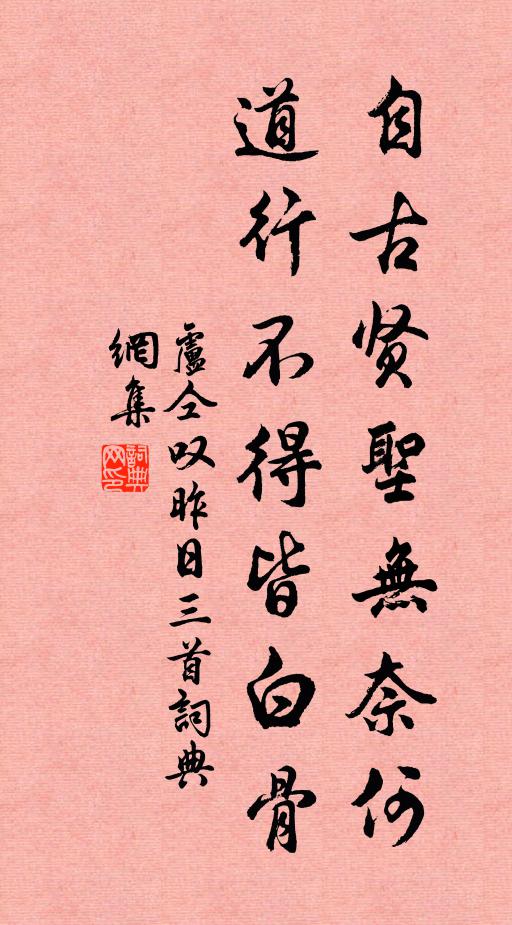 自古贤聖無奈何
道行不得皆白骨
盧仝叹昨日三首詞典
網集
詞典網印